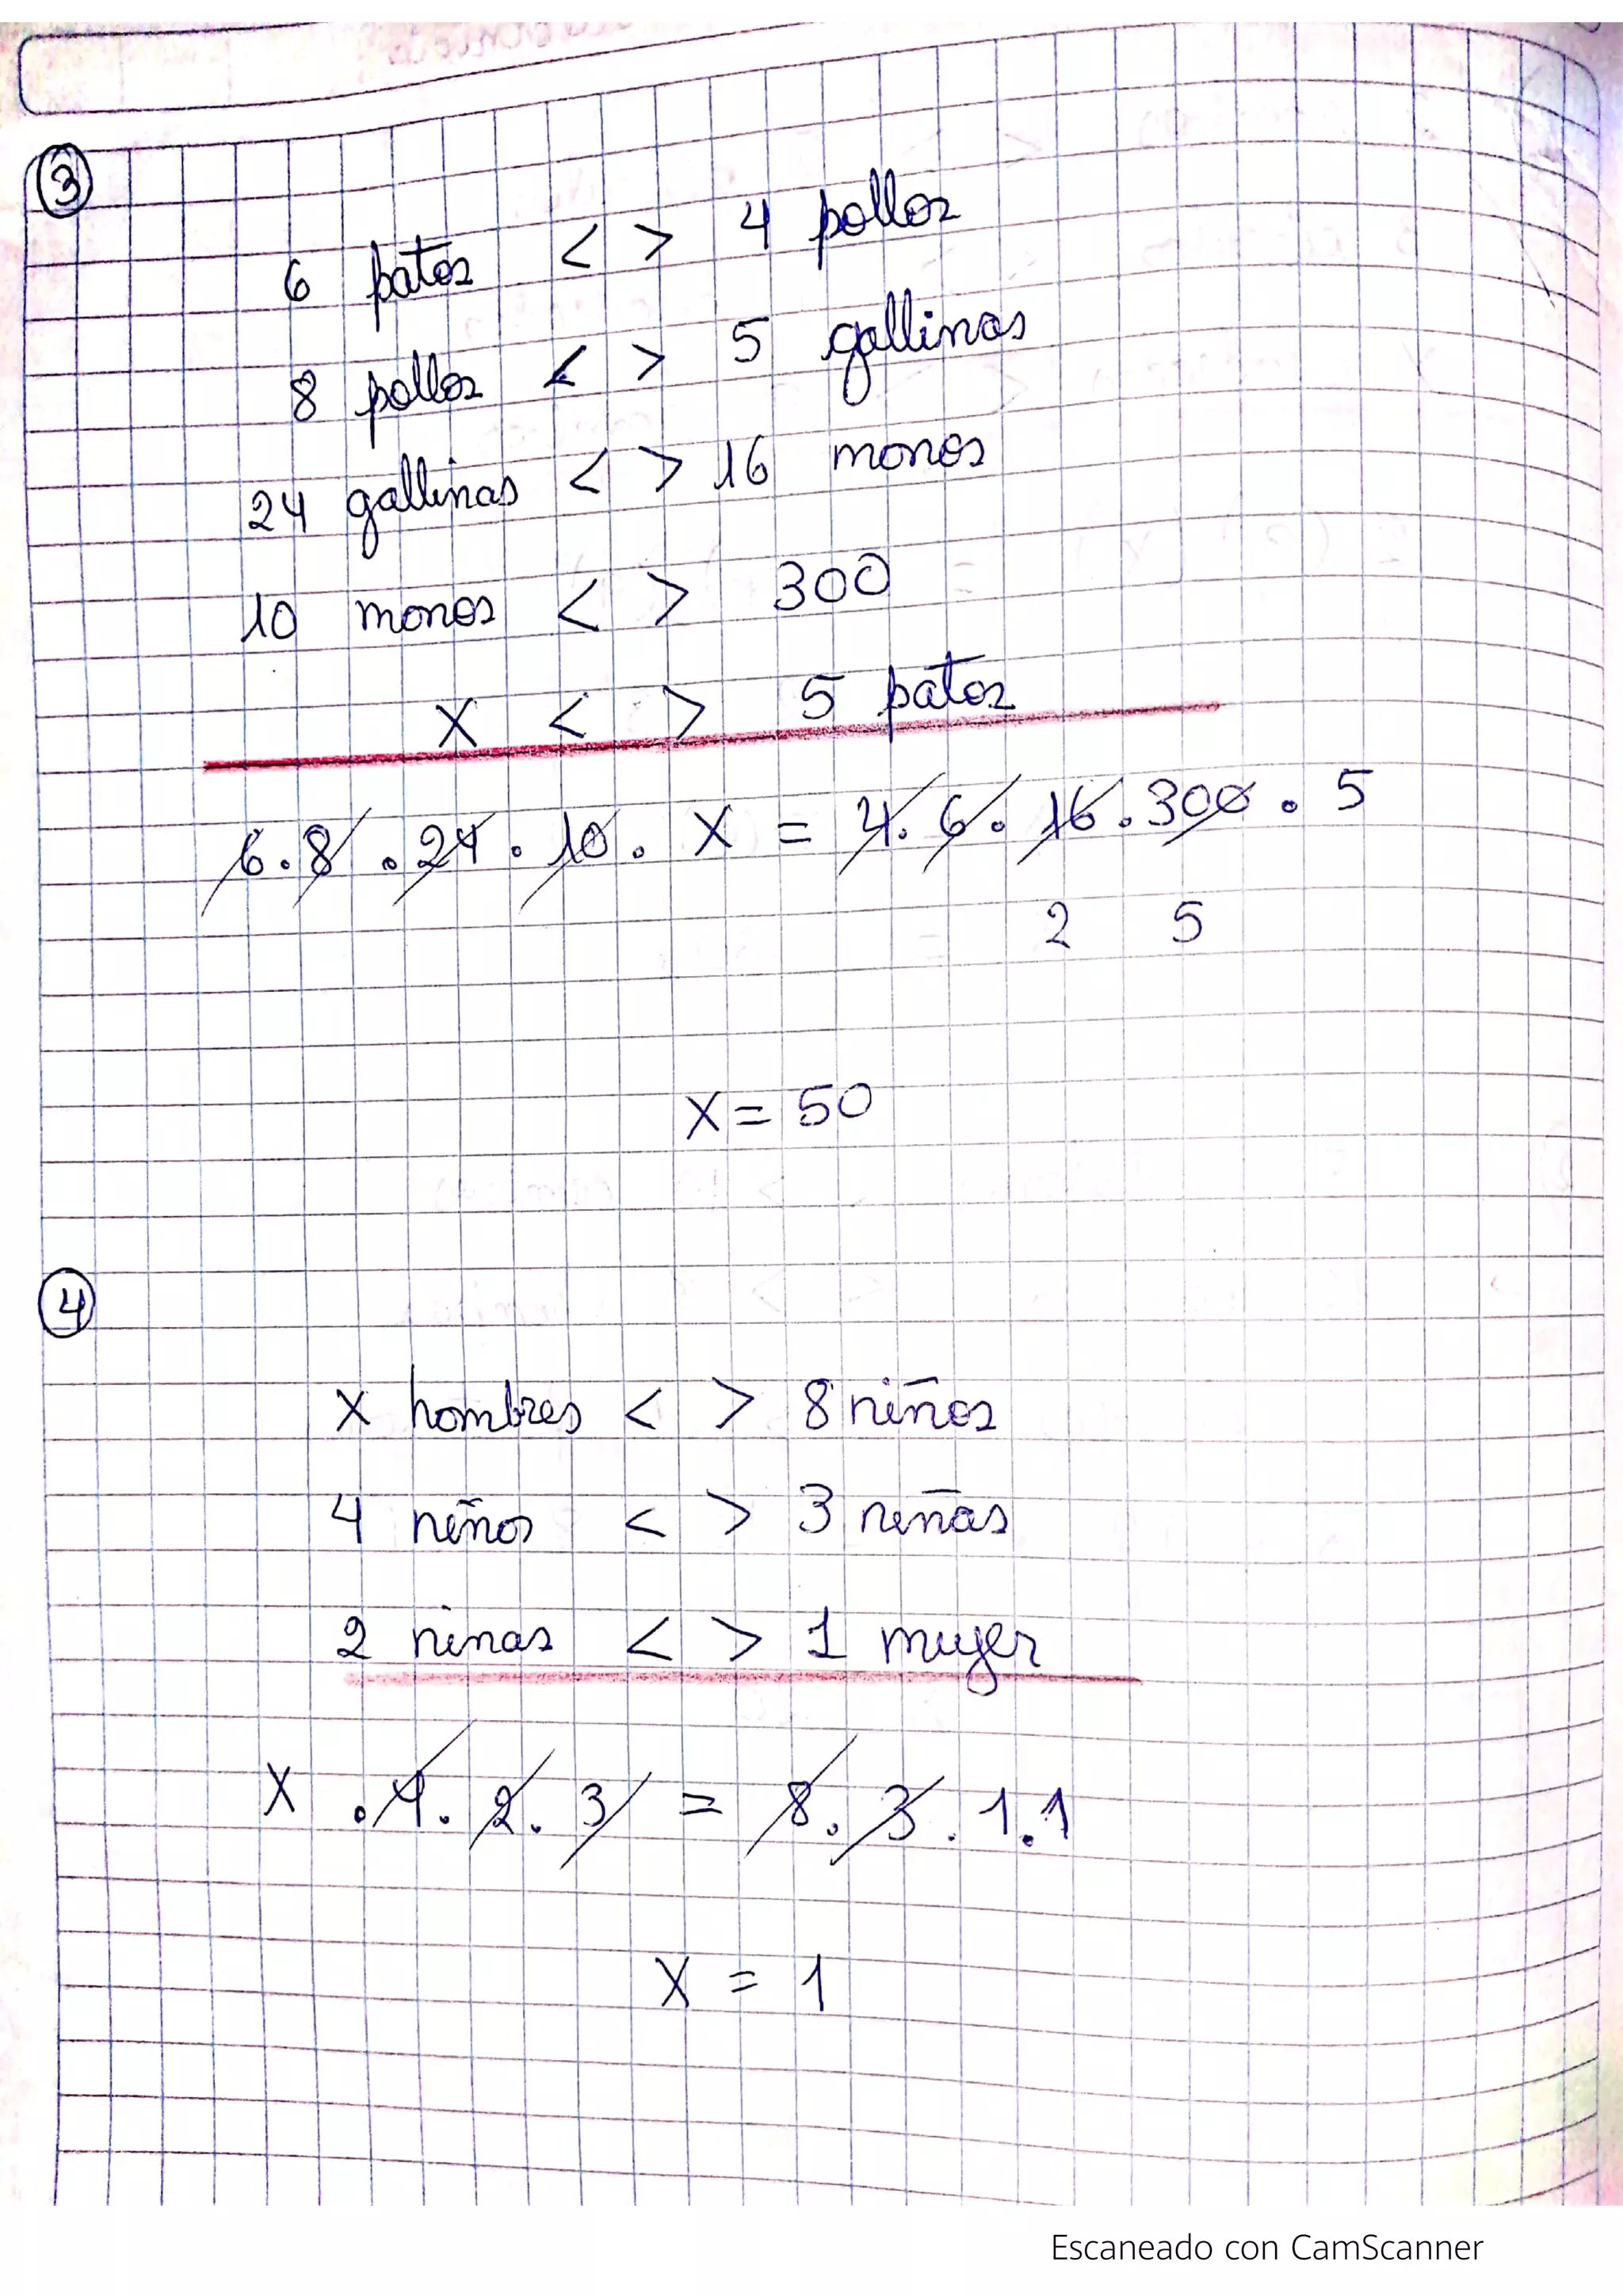 3
6 patos < > 4 pollos
8 pollos < > 5 gallinas
24 gallinas < > 16 monos
10 monos < > 300
X < > 5 patos
6.8.24.10.X = 4.6.16.300.5
2 5
X = 50
4
X hombres < > 8 niños
4 niños < > 3 niñas
2 ninas < > 1 mujer
X.4.2.3 = 8.3.1.1
X = 1
Escaneado con CamScanner